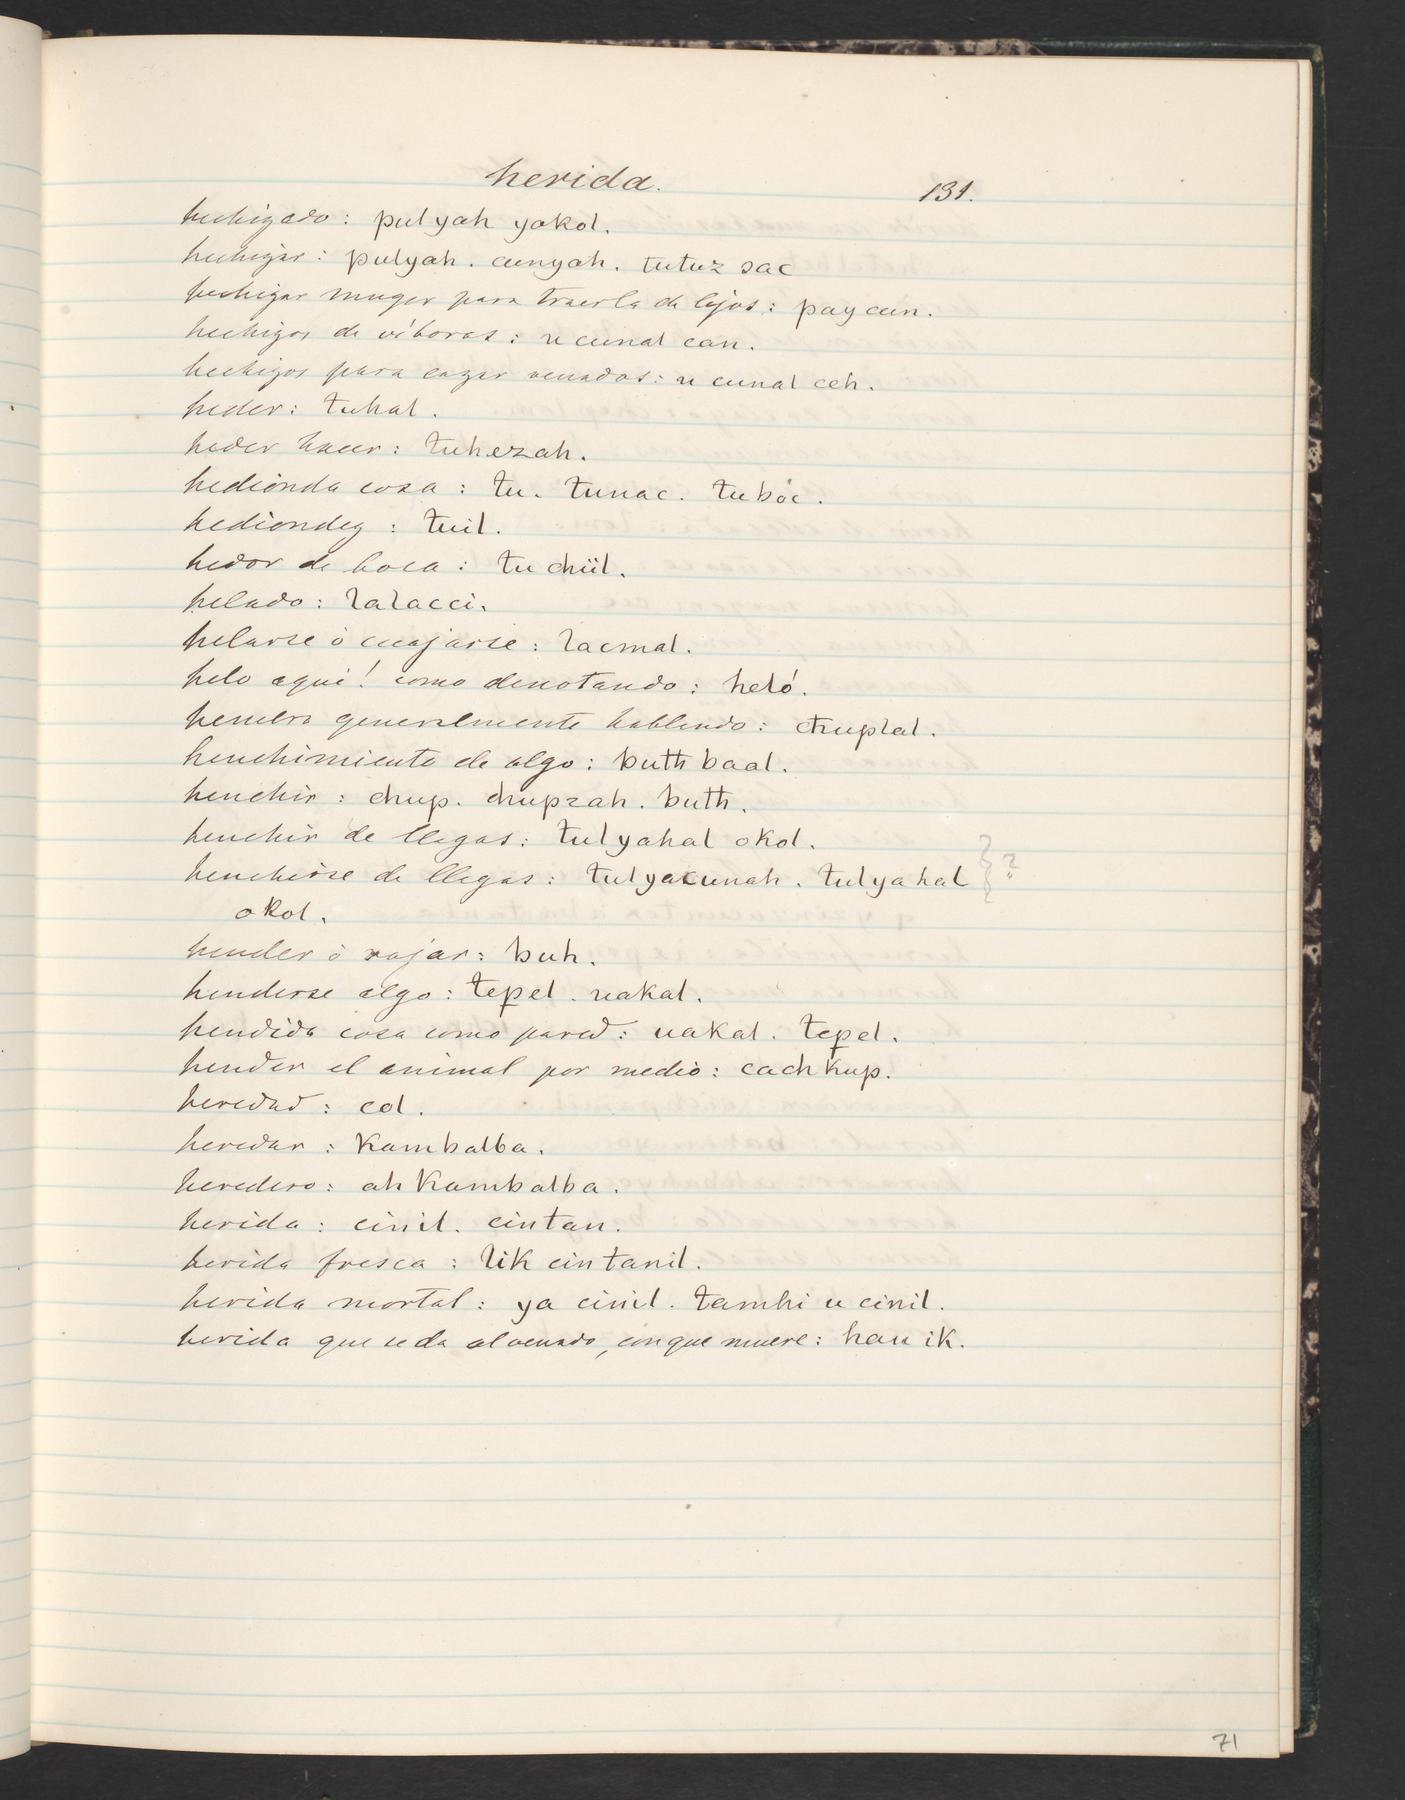 herida.
131.
hechizado: pulyah yokol.
hechizar: pulyah. cunyah. tutuz sac
hechizar muger para traerla de lejos: pay cun.
hechizos de víboras: u cunal can.
hechizos para cazar venados: u cunal ceh.
heder: tuhal.
heder hacer: tuhezah.
hedionda cosa: tu. tunac. tuboc.
hediondez: tuil.
hedor de boca: tu chiil.
helado: lalacci.
helarse ò cuajarse: lacmal.
helo aqui! como denotando: heló.
hembra generalmente hablando: chuplal.
henchimiento de algo: buth baal.
henchir: chup. chupzah. buth.
henchir de llagas: tulyahal okol.
henchirse de llagas: tulyacunah. tulyahal } ?
okol.
hender ò rajar: buh.
henderse algo: tepel. uakal.
hendida cosa como pared: uakal. tepel.
hender el animal por medio: cach kup.
heredad: col.
heredar: kambalba.
heredero: ah kambalba.
herida: cinil. cintan.
herida fresca: lik cintanil.
herida mortal: ya cinil. tamhi u cinil.
herida que se da al venado, con que muere: hau ik.
71